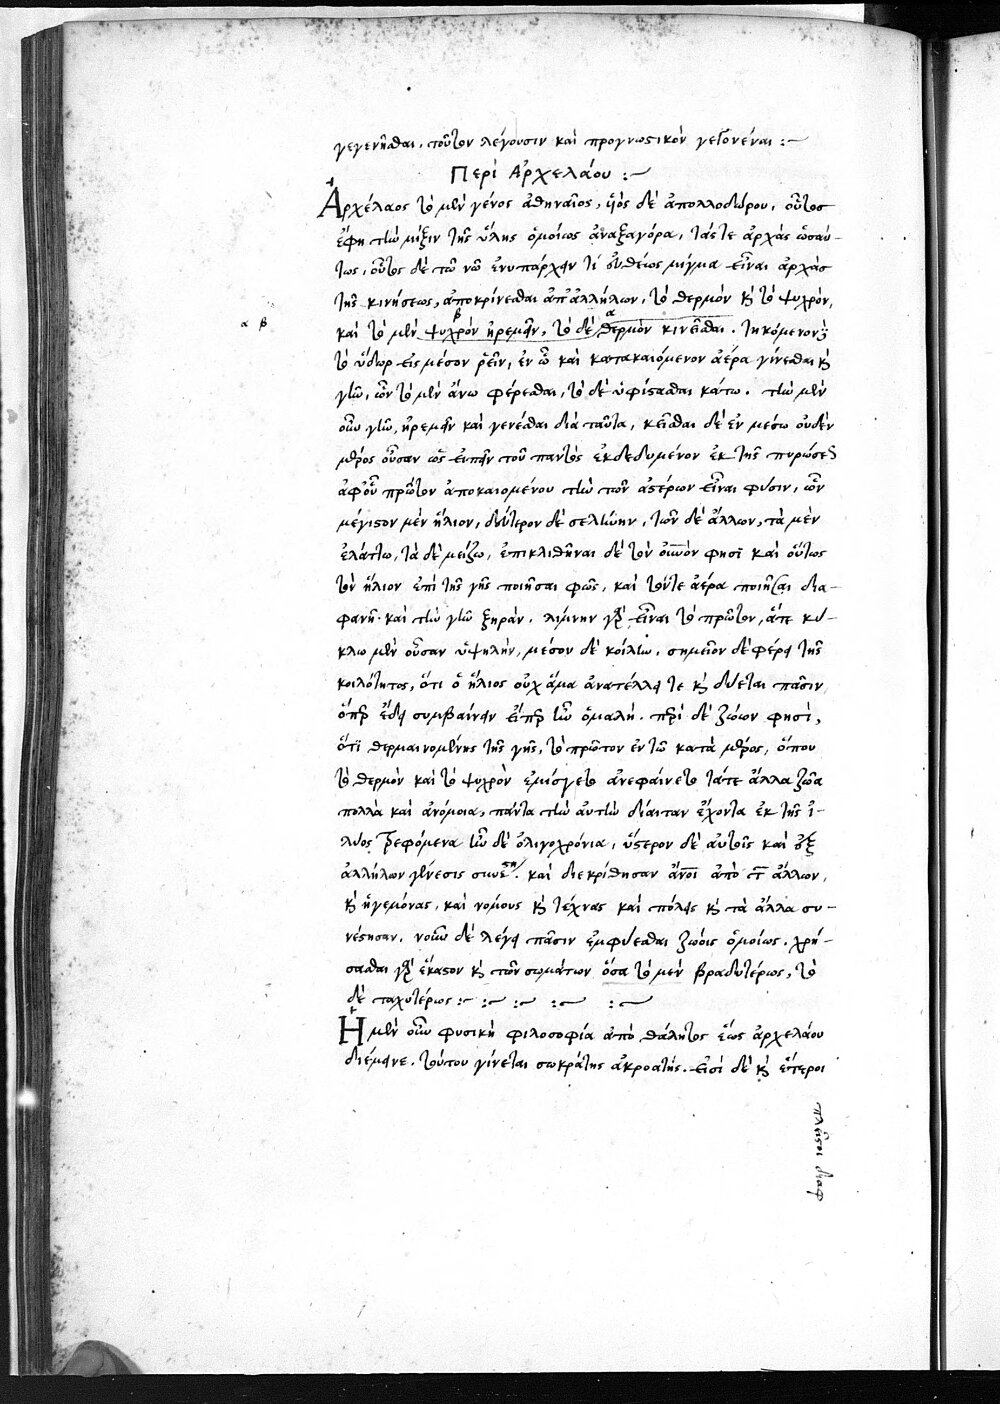 γεγενῆσθαι. τοῦτον λέγουσιν καὶ προγνωστικὸν γεγονέναι :~
Περὶ Ἀρχελάου :~
Ἀρχέλαος τὸ μὲν γένος ἀθηναῖος, υἱὸς δὲ ἀπολλοδώρου. οὗτος
ἔφη τὴν μίξιν τῆς ὕλης ὁμοίως ἀναξαγόρα, τάς τε ἀρχὰς ὡσαύ-
τως, οὗτος δὲ τῶ νῶ ἐνυπάρχειν τὶ εὐθέως μίγμα εἶναι ἀρχὰς
τῆς κινήσεως, ἀποκρίνεσθαι ἀπ' ἀλλήλων, τὸ θερμὸν κ τὸ ψυχρὸν,
α β
β α
καὶ τὸ μὲν ψυχρὸν ἠρεμεῖν, τὸ δὲ θερμὸν κινεῖσθαι. τηκόμενον
τὸ ὕδωρ εἰς μέσον ῥεῖν, ἐν ὧ καὶ κατακαιόμενον ἀέρα γίνεσθαι κ
γῆν, ὧν τὸ μὲν ἄνω φέρεσθαι, τὸ δὲ ὑφίστασθαι κάτω. τὴν μὲν
οὖν γῆν, ἠρεμεῖν καὶ γενέσθαι διὰ ταῦτα, κεῖσθαι δὲ ἐν μέσω οὐδὲν
μέρος οὖσαν ὡς εἰπεῖν τοῦ παντὸς ἐκδεδυμένον ἐκ τῆς πυρώσεως
ἀφ' οὗ πρῶτον ἀποκαιομένου τὴν τῶν ἀστέρων εἶναι φύσιν, ὧν
μέγιστον μὲν ἥλιον, δεύτερον δὲ σελήνην, τῶν δὲ ἄλλων, τὰ μὲν
ἐλάττω, τὰ δὲ μείζω, ἐπικλιθῆναι δὲ τὸν οὐνὸν φησὶ καὶ οὕτως
τὸν ἥλιον ἐπὶ τῆς γῆς ποιῆσαι φῶς, καὶ τόν τε ἀέρα ποιῆσαι δια-
φανῆ· καὶ τὴν γῆν ξηράν. λίμνην γὰρ εἶναι τὸ πρῶτον, ἅτε κύ-
κλω μὲν οὖσαν ὑψηλὴν, μέσον δὲ κοίλην. σημεῖον δὲ φέρει τῆς
κοιλότητος, ὅτι ὁ ἥλιος οὐχ ἅμα ἀνατέλλει τε κ δύεται πᾶσιν,
ὅπερ ἔδει συμβαίνειν εἴπερ ἦν ὁμαλή. περὶ δὲ ζώων φησὶ,
ὅτι θερμαινομένης τῆς γῆς, τὸ πρῶτον ἐν τῶ κατὰ μέρος, ὅπου
τὸ θερμὸν καὶ τὸ ψυχρὸν ἐμίσγετο ἀνεφαίνετο τά τε ἄλλα ζῶα
πολλὰ καὶ ἀνόμοια, πάντα τὴν αὐτὴν δίαιταν ἔχοντα ἐκ τῆς ἰ-
λύος τρεφόμενα ἦν δὲ ὀλιγοχρόνια, ὕστερον δὲ αὐτοῖς καὶ ἐξ
ἀλλήλων γένεσις συνέστη. καὶ διεκρίθησαν ἄνοι ἀπὸ τῶν ἄλλων,
κ ἡγεμόνας, καὶ νόμους κ τέχνας καὶ πόλεις κ τὰ ἄλλα συ-
νέστησαν. νοῦν δὲ λέγει πᾶσιν ἐμφύεσθαι ζώοις ὁμοίως. χρή-
σασθαι γὰρ ἕκαστον κ τῶν σωμάτων ὅσα τὸ μὲν βραδυτέρως, τὸ
δὲ ταχυτέρως :~ :~ :~ :~ :~
Ἡ μὲν οὖν φυσικὴ φιλοσοφία ἀπὸ θάλητος ἕως ἀρχελάου
διέμεινε. τούτου γίνεται σωκράτης ἀκροατής. εἰσὶ δὲ κ ἕτεροι
πλεῖστοι διαφ